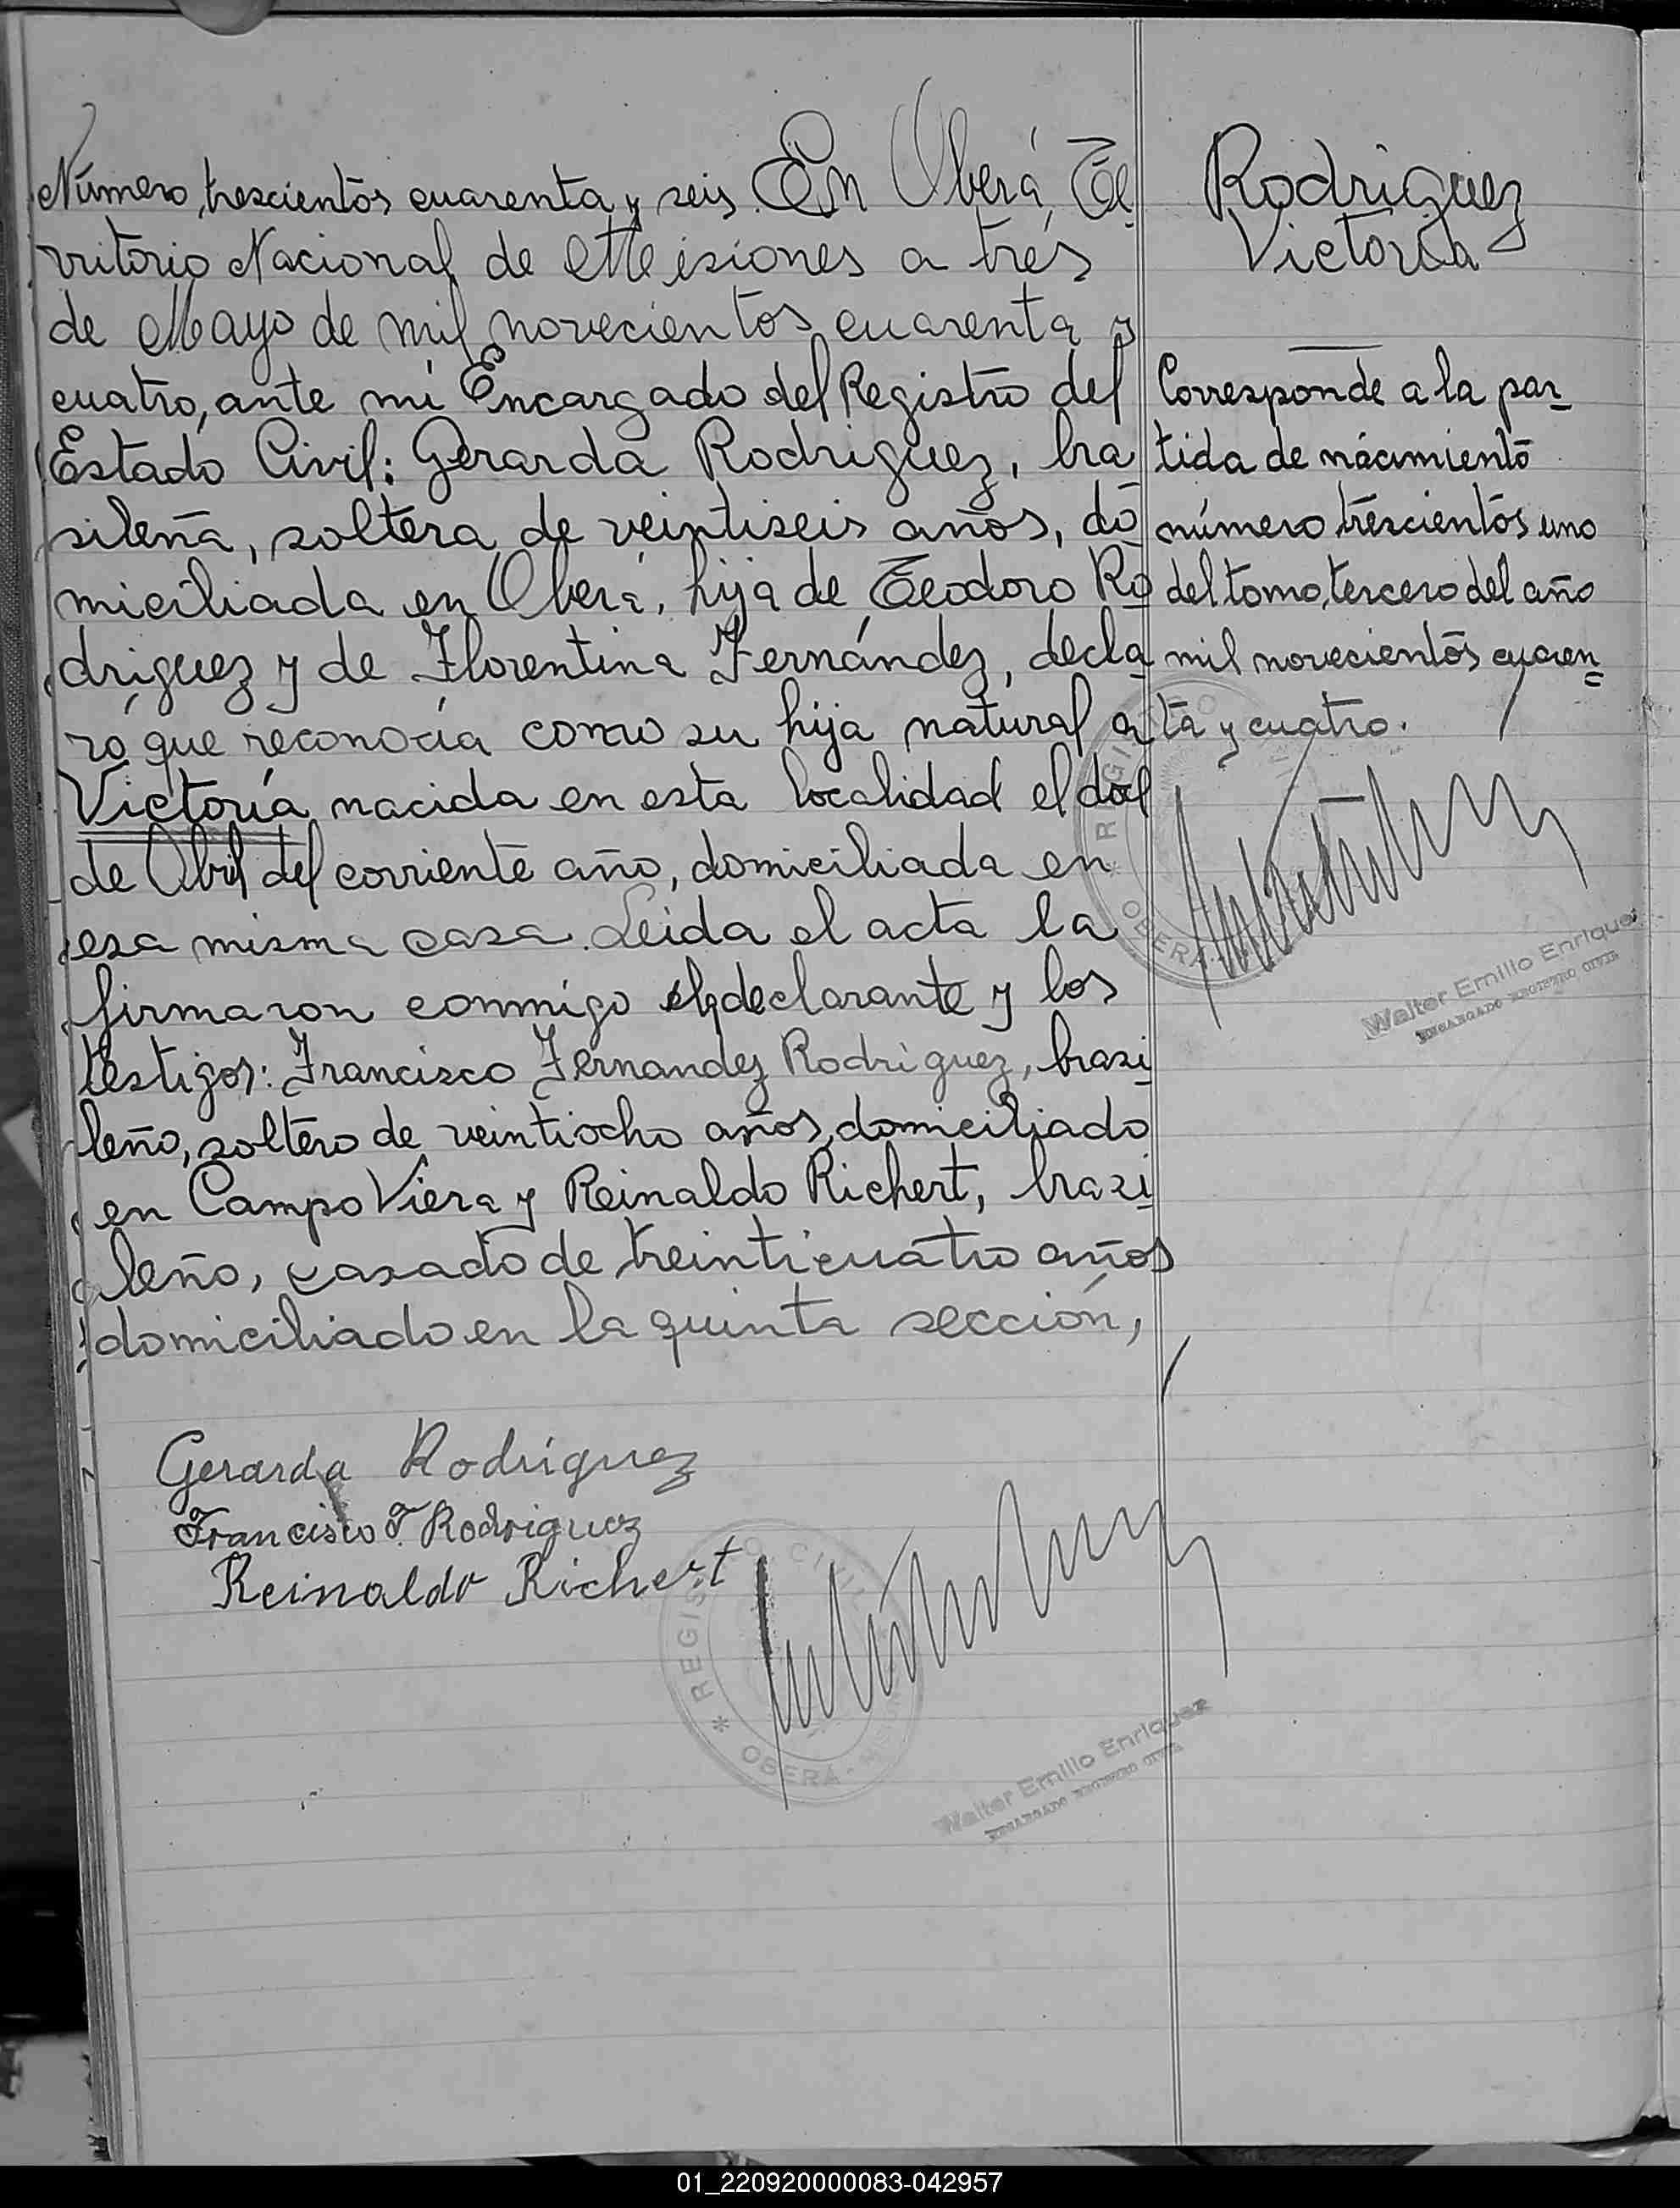 Número trescientos cuarenta y seis. En Oberá, Te
rritorio Nacional de Misiones a tres
de Mayo de mil novecientos cuarenta y
cuatro, ante mí Encargado del Registro del
Estado Civil: Gerarda Rodriguez, bra
sileña, soltera de veintiseis años, do
miciliada en Oberá, hija de Teodoro Ro
driguez y de Florentina Fernández, decla
ró que reconocía como su hija natural a
Victoria nacida en esta localidad el dos
de Abril del corriente año, domiciliada en
esa misma casa. Leida el acta la
firmaron conmigo la declarante y los
testigos: Francisco Fernandez Rodriguez, brasi
leño, soltero de veintiocho años, domiciliado
en Campo Viera y Reinaldo Richert, brasi
leño, casado de treinticuatro años
domiciliado en la quinta sección,
Gerarda Rodriguez
Francisco F. Rodriguez
Reinaldo Richert
REGISTRO CIVIL
OBERÁ - MISIONES
Walter Emilio Enriquez
ENCARGADO REGISTRO CIVIL
Rodriguez
Victoria
Corresponde a la par
tida de nacimiento
número trescientos uno
del tomo tercero del año
mil novecientos cuaren
ta y cuatro.
REGISTRO
OBERÁ
Walter Emilio Enriquez
ENCARGADO REGISTRO CIVIL
01_220920000083-042957